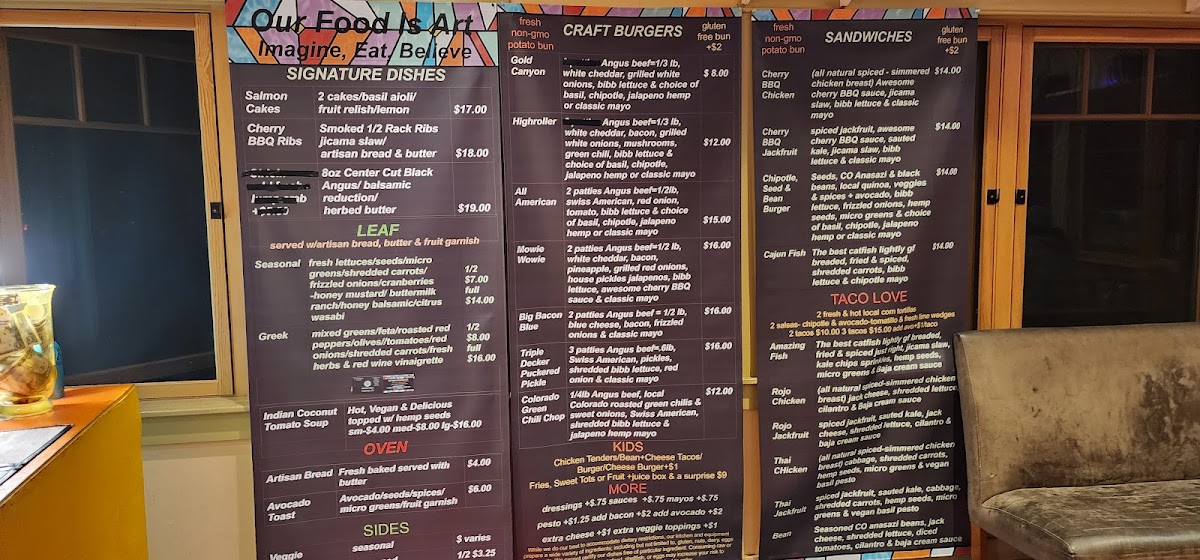 Our Food Is Art
Imagine, Eat, Believe
SIGNATURE DISHES
Salmon Cakes
2 cakes/basil aioli/
fruit relish/lemon
$17.00
Cherry BBQ Ribs
Smoked 1/2 Rack Ribs
jicama slaw/
artisan bread & butter
$18.00
8oz Center Cut Black
Angus/ balsamic
reduction/
herbed butter
$19.00
LEAF
served w/artisan bread, butter & fruit garnish
Seasonal
fresh lettuces/seeds/micro
greens/shredded carrots/
frizzled onions/cranberries
-honey mustard/ buttermilk
ranch/honey balsamic/citrus
wasabi
1/2
$7.00
full
$14.00
Greek
mixed greens/feta/roasted red
peppers/olives//tomatoes/red
onions/shredded carrots/fresh
herbs & red wine vinaigrette
1/2
$8.00
full
$16.00
Indian Coconut
Tomato Soup
Hot, Vegan & Delicious
topped w/ hemp seeds
sm-$4.00 med-$8.00 lg-$16.00
OVEN
Artisan Bread
Fresh baked served with
butter
$4.00
Avocado
Toast
Avocado/seeds/spices/
micro greens/fruit garnish
$6.00
SIDES
seasonal
$ varies
Veggie
1/2 $3.25
fresh
non-gmo
potato bun
CRAFT BURGERS
gluten
free bun
+$2
Gold
Canyon
Angus beef=1/3 lb,
white cheddar, grilled white
onions, bibb lettuce & choice of
basil, chipotle, jalapeno hemp
or classic mayo
$ 8.00
Highroller
Angus beef=1/3 lb,
white cheddar, bacon, grilled
white onions, mushrooms,
green chili, bibb lettuce &
choice of basil, chipotle,
jalapeno hemp or classic mayo
$12.00
All
American
2 patties Angus beef=1/2lb,
swiss American, red onion,
tomato, bibb lettuce & choice
of basil, chipotle, jalapeno
hemp or classic mayo
$15.00
Mowie
Wowie
2 patties Angus beef=1/2 lb,
white cheddar, bacon,
pineapple, grilled red onions,
house pickles jalapenos, bibb
lettuce, awesome cherry BBQ
sauce & classic mayo
$16.00
Big Bacon
Blue
2 patties Angus beef = 1/2 lb,
blue cheese, bacon, frizzled
onions & classic mayo
$16.00
Triple
Decker
Puckered
Pickle
3 patties Angus beef=.6lb,
Swiss American, pickles,
shredded bibb lettuce, red
onion & classic mayo
$16.00
Colorado
Green
Chili Chop
1/4lb Angus beef, local
Colorado roasted green chilis &
sweet onions, Swiss American,
shredded bibb lettuce &
jalapeno hemp mayo
$12.00
KIDS
Chicken Tenders/Bean+Cheese Tacos/
Burger/Cheese Burger+$1
Fries, Sweet Tots or Fruit +juice box & a surprise $9
MORE
dressings +$.75 sauces +$.75 mayos +$.75
pesto +$1.25 add bacon +$2 add avocado +$2
extra cheese +$1 extra veggie toppings +$1
While we do our best to accommodate dietary restrictions, our kitchen and equipment
prepare a wide variety of ingredients; including but not limited to, gluten, nuts, dairy, eggs
fresh
non-gmo
potato bun
SANDWICHES
gluten
free bun
+$2
Cherry
BBQ
Chicken
(all natural spiced - simmered
chicken breast) Awesome
cherry BBQ sauce, jicama
slaw, bibb lettuce & classic
mayo
$14.00
Cherry
BBQ
Jackfruit
spiced jackfruit, awesome
cherry BBQ sauce, sauted
kale, jicama slaw, bibb
lettuce & classic mayo
$14.00
Chipotle,
Seed &
Bean
Burger
Seeds, CO Anasazi & black
beans, local quinoa, veggies
& spices + avocado, bibb
lettuce, frizzled onions, hemp
seeds, micro greens & choice
of basil, chipotle, jalapeno
hemp or classic mayo
$14.00
Cajun Fish
The best catfish lightly gf
breaded, fried & spiced,
shredded carrots, bibb
lettuce & chipotle mayo
$14.00
TACO LOVE
2 fresh & hot local corn tortillas
2 salsas- chipotle & avocado-tomatillo & fresh lime wedges
2 tacos $10.00 3 tacos $15.00 add avo+$1/taco
Amazing
Fish
The best catfish lightly gf breaded,
fried & spiced just right, jicama slaw,
kale chips sprinkles, hemp seeds,
micro greens & baja cream sauce
Rojo
Chicken
(all natural spiced-simmered chicken
breast) jack cheese, shredded lettuce,
cilantro & Baja cream sauce
Rojo
Jackfruit
spiced jackfruit, sauted kale, jack
cheese, shredded lettuce, cilantro &
baja cream sauce
Thai
CHicken
(all natural spiced-simmered chicken
breast) cabbage, shredded carrots,
hemp seeds, micro greens & vegan
basil pesto
Thai
Jackfruit
spiced jackfruit, sauted kale, cabbage,
shredded carrots, hemp seeds, micro
greens & vegan basil pesto
Bean
Seasoned CO anasazi beans, jack
cheese, shredded lettuce, diced
tomatoes, cilantro & baja cream sauce